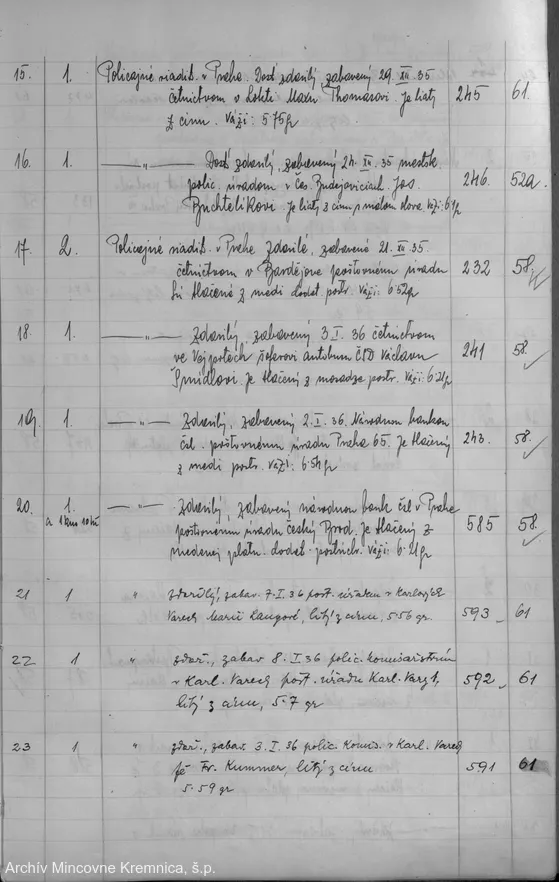 15. 1. Policajné riadit. v Prahe. Dosť zdarilý, zabavený 29. XII. 35
četníctvom v Lokti Maxu Thomasovi. Je liaty 245 61.
z cínu. Váži: 5·75 gr
16. 1. —„— Dosť zdarilý, zabavený 24. XII. 35 mestsk.
polic. úradom v Čes. Budejoviciach. Jos. 246. 52a.
Buchtelikovi. Je liaty z cínu s malom olova. Váži: 6·1 gr
17. 2. Policajné riadit. v Prahe zdarilé, zabavené 21. XII. 35
četníctvom v Bardějove poštovnému úradu 232 58.
Sú tlačené z medi dodat. postr. Váži: 6·52 gr
18. 1. —„— Zdarilý, zabavený 3. I. 36 četníctvom
ve Vejprtech šoferovi autobusu ČSD Václavu 241 58.
Šmidlovi. Je tlačený z mosadze postr. Váži: 6·21 gr
19. 1. —„— Zdarilý, zabavený 2. I. 36. Národnou bankou
čsl. poštovnému úradu Praha 65. Je tlačený 243. 58.
z medi postr. Váži: 6·54 gr
20. 1. —„— Zdarilý, zabavený národnou bank. čsl v Prahe
poštovnému úradu český Brod. Je tlačený z 585 58.
medenej platn. dodat. postriebr. Váži: 6·21 gr
21 1 „ zdařilý, zabav. 7. I. 36 pošt. úřadem v Karlových
Varech Marii Langové, litý z cínu, 5·56 gr. 593 61
22 1 „ zdař., zabav 8. I. 36 polic. komisařstvím
v Karl. Varech pošt. úřadu Karl. Vary 1, 592 61
litý z cínu, 5·7 gr
23 1 „ zdař., zabav. 3. I. 36 polic. komis. v Karl. Varech
Fr. Kummer, litý z cínu 591 61
5·59 gr
Archív Mincovne Kremnica, š.p.